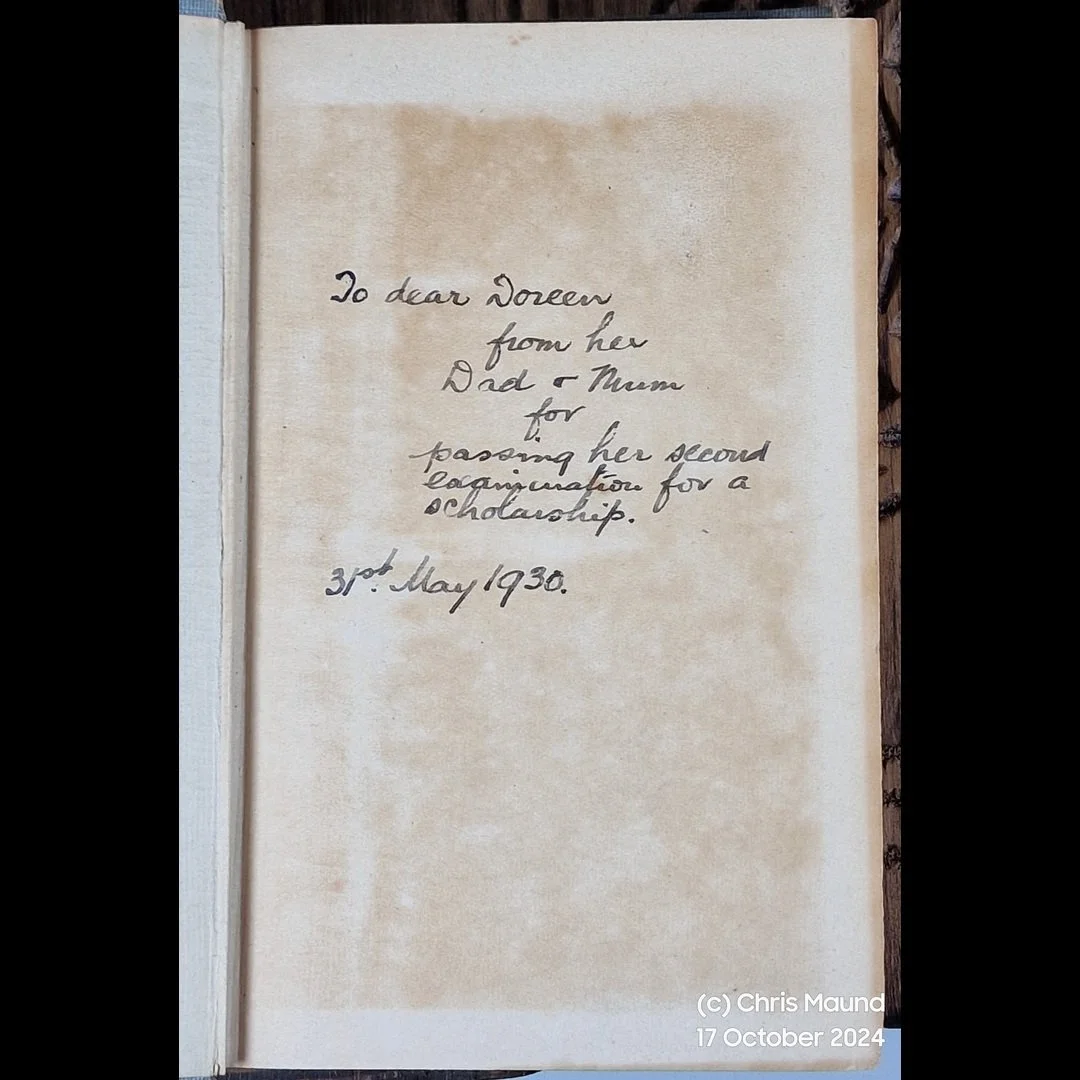 To dear Doreen
from her
Dad & Mum
for
passing her second
examination for a
scholarship.
31st. May 1930.
(c) Chris Maund
17 October 2024